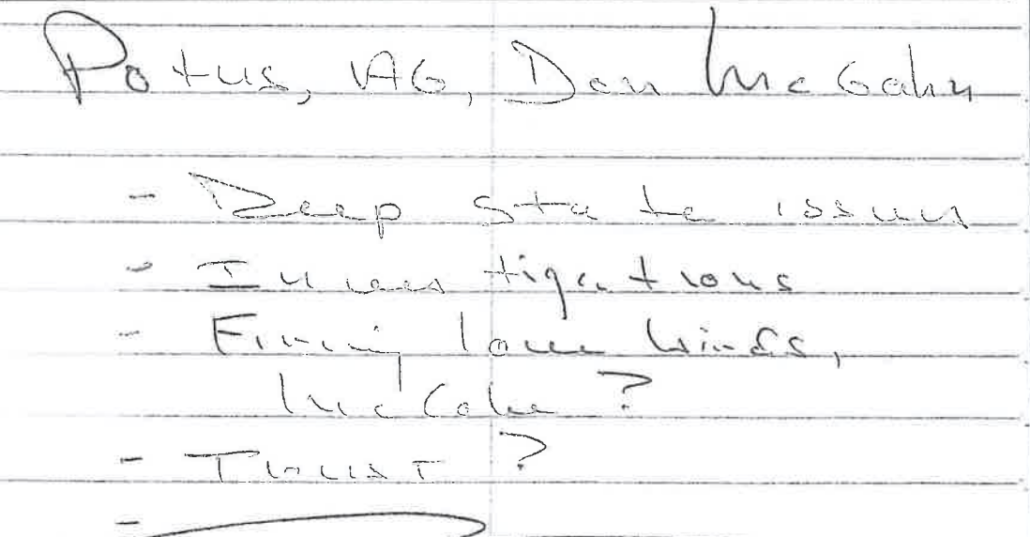 Potus, AG, Don McGahn
- Deep state issues
- Investigations
- Firing love birds,
McCabe?
- Trust?
-